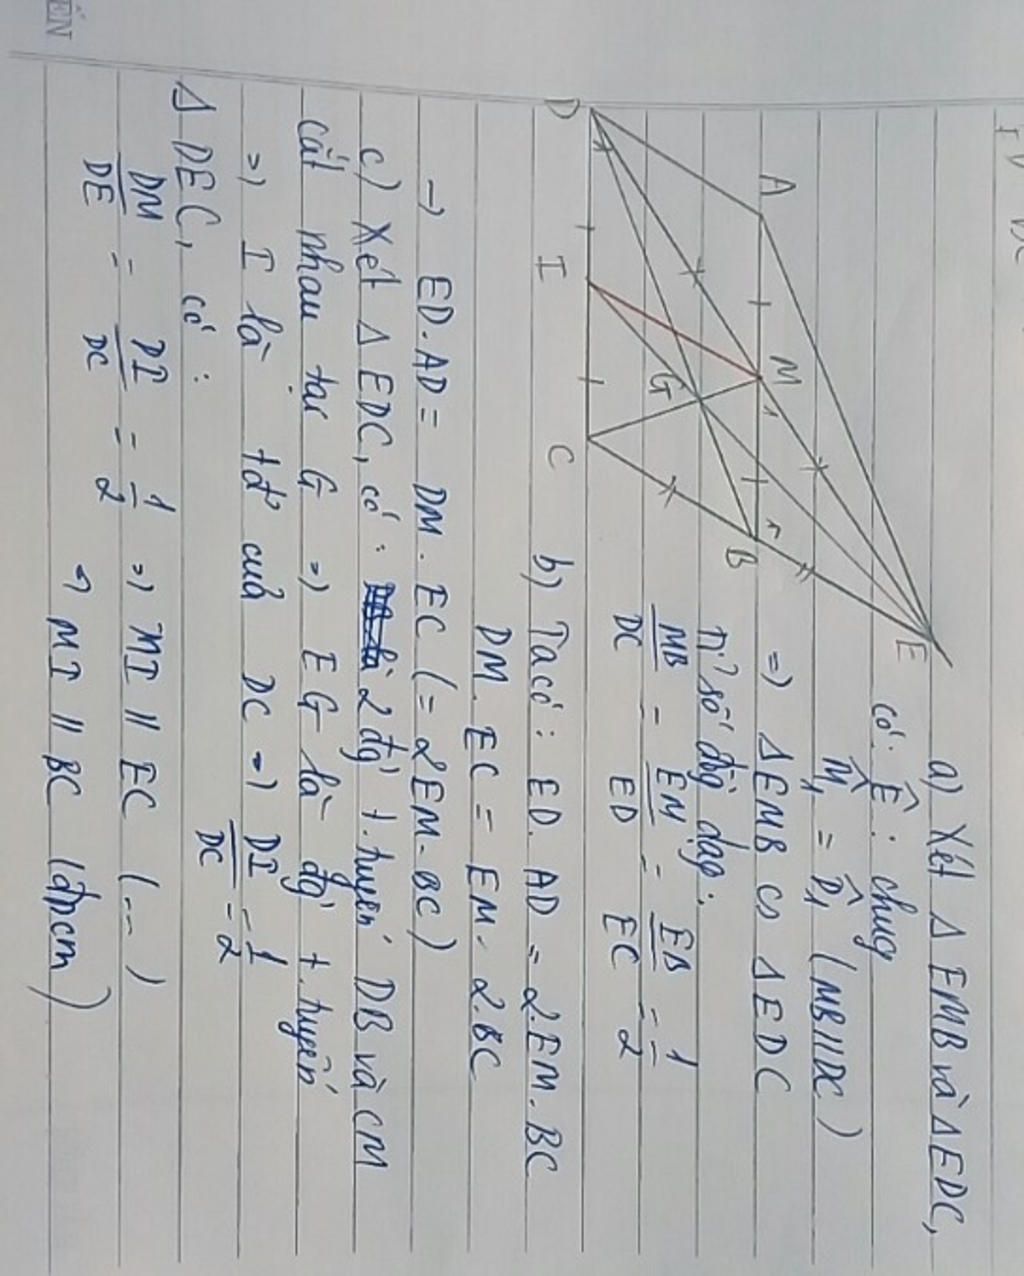 a) Xét Δ EMB và Δ EDC,
có: Ê : chung
M̂₁ = D̂₁ (MB // DC)
=> Δ EMB ∽ Δ EDC
Tỉ số đồg dạg:
MB/DC = EM/ED = EB/EC = 1/2
b) Ta có: ED. AD = 2.EM. BC
DM. EC = EM. 2.BC
→ ED. AD = DM. EC (= 2EM. BC)
c) Xét Δ EDC, có: 2 đg` t.tuyến DB và CM
cắt nhau tại G => EG là đg` t.tuyến
=> I là tđ' của DC => DI/DC = 1/2
Δ DEC, có:
DM/DE = DI/DC = 1/2 => MI // EC (...)
=> MI // BC (đpcm)
A
M
1
B
1
E
D
I
C
G
ẾN